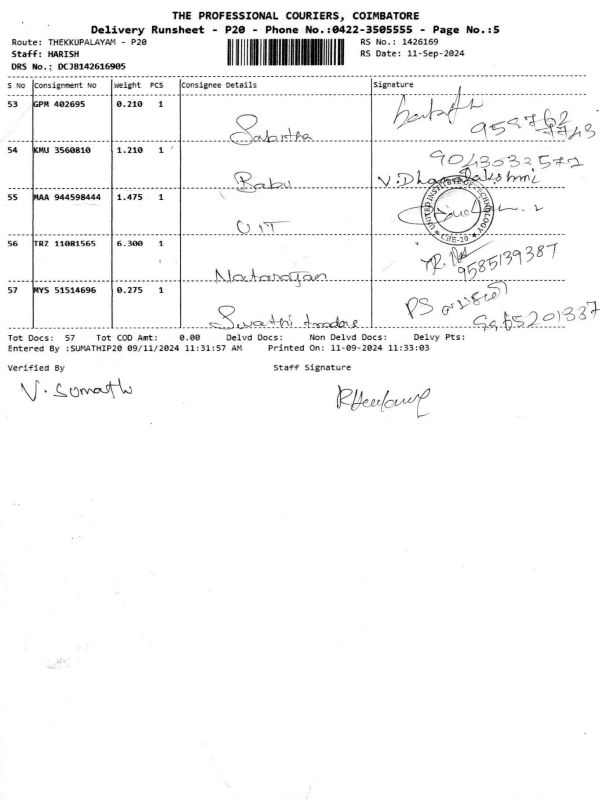 THE PROFESSIONAL COURIERS, COIMBATORE
Delivery Runsheet - P20 - Phone No.:0422-3505555 - Page No.:5
Route: THEKKUPALAYAM - P20 RS No.: 1426169
Staff: HARISH RS Date: 11-Sep-2024
DRS No.: DCJB142616905
S No Consignment No Weight PCS Consignee Details Signature
53 GPM 402695 0.210 1 Sabitha
54 KMU 3560810 1.210 1 Babu 9043032571
V.Dhanalakshmi
55 MAA 944598444 1.475 1 UIT
UNITED INSTITUTE OF TECHNOLOGY
* CBE-20 *
56 TRZ 11081565 6.300 1 Natarajan 9585139387
57 MYS 51514696 0.275 1 Swathi tradore PS
Tot Docs: 57 Tot COD Amt: 0.00 Delvd Docs: Non Delvd Docs: Delvy Pts:
Entered By :SUMATHIP20 09/11/2024 11:31:57 AM Printed On: 11-09-2024 11:33:03
Verified By Staff Signature
V. Sumathi